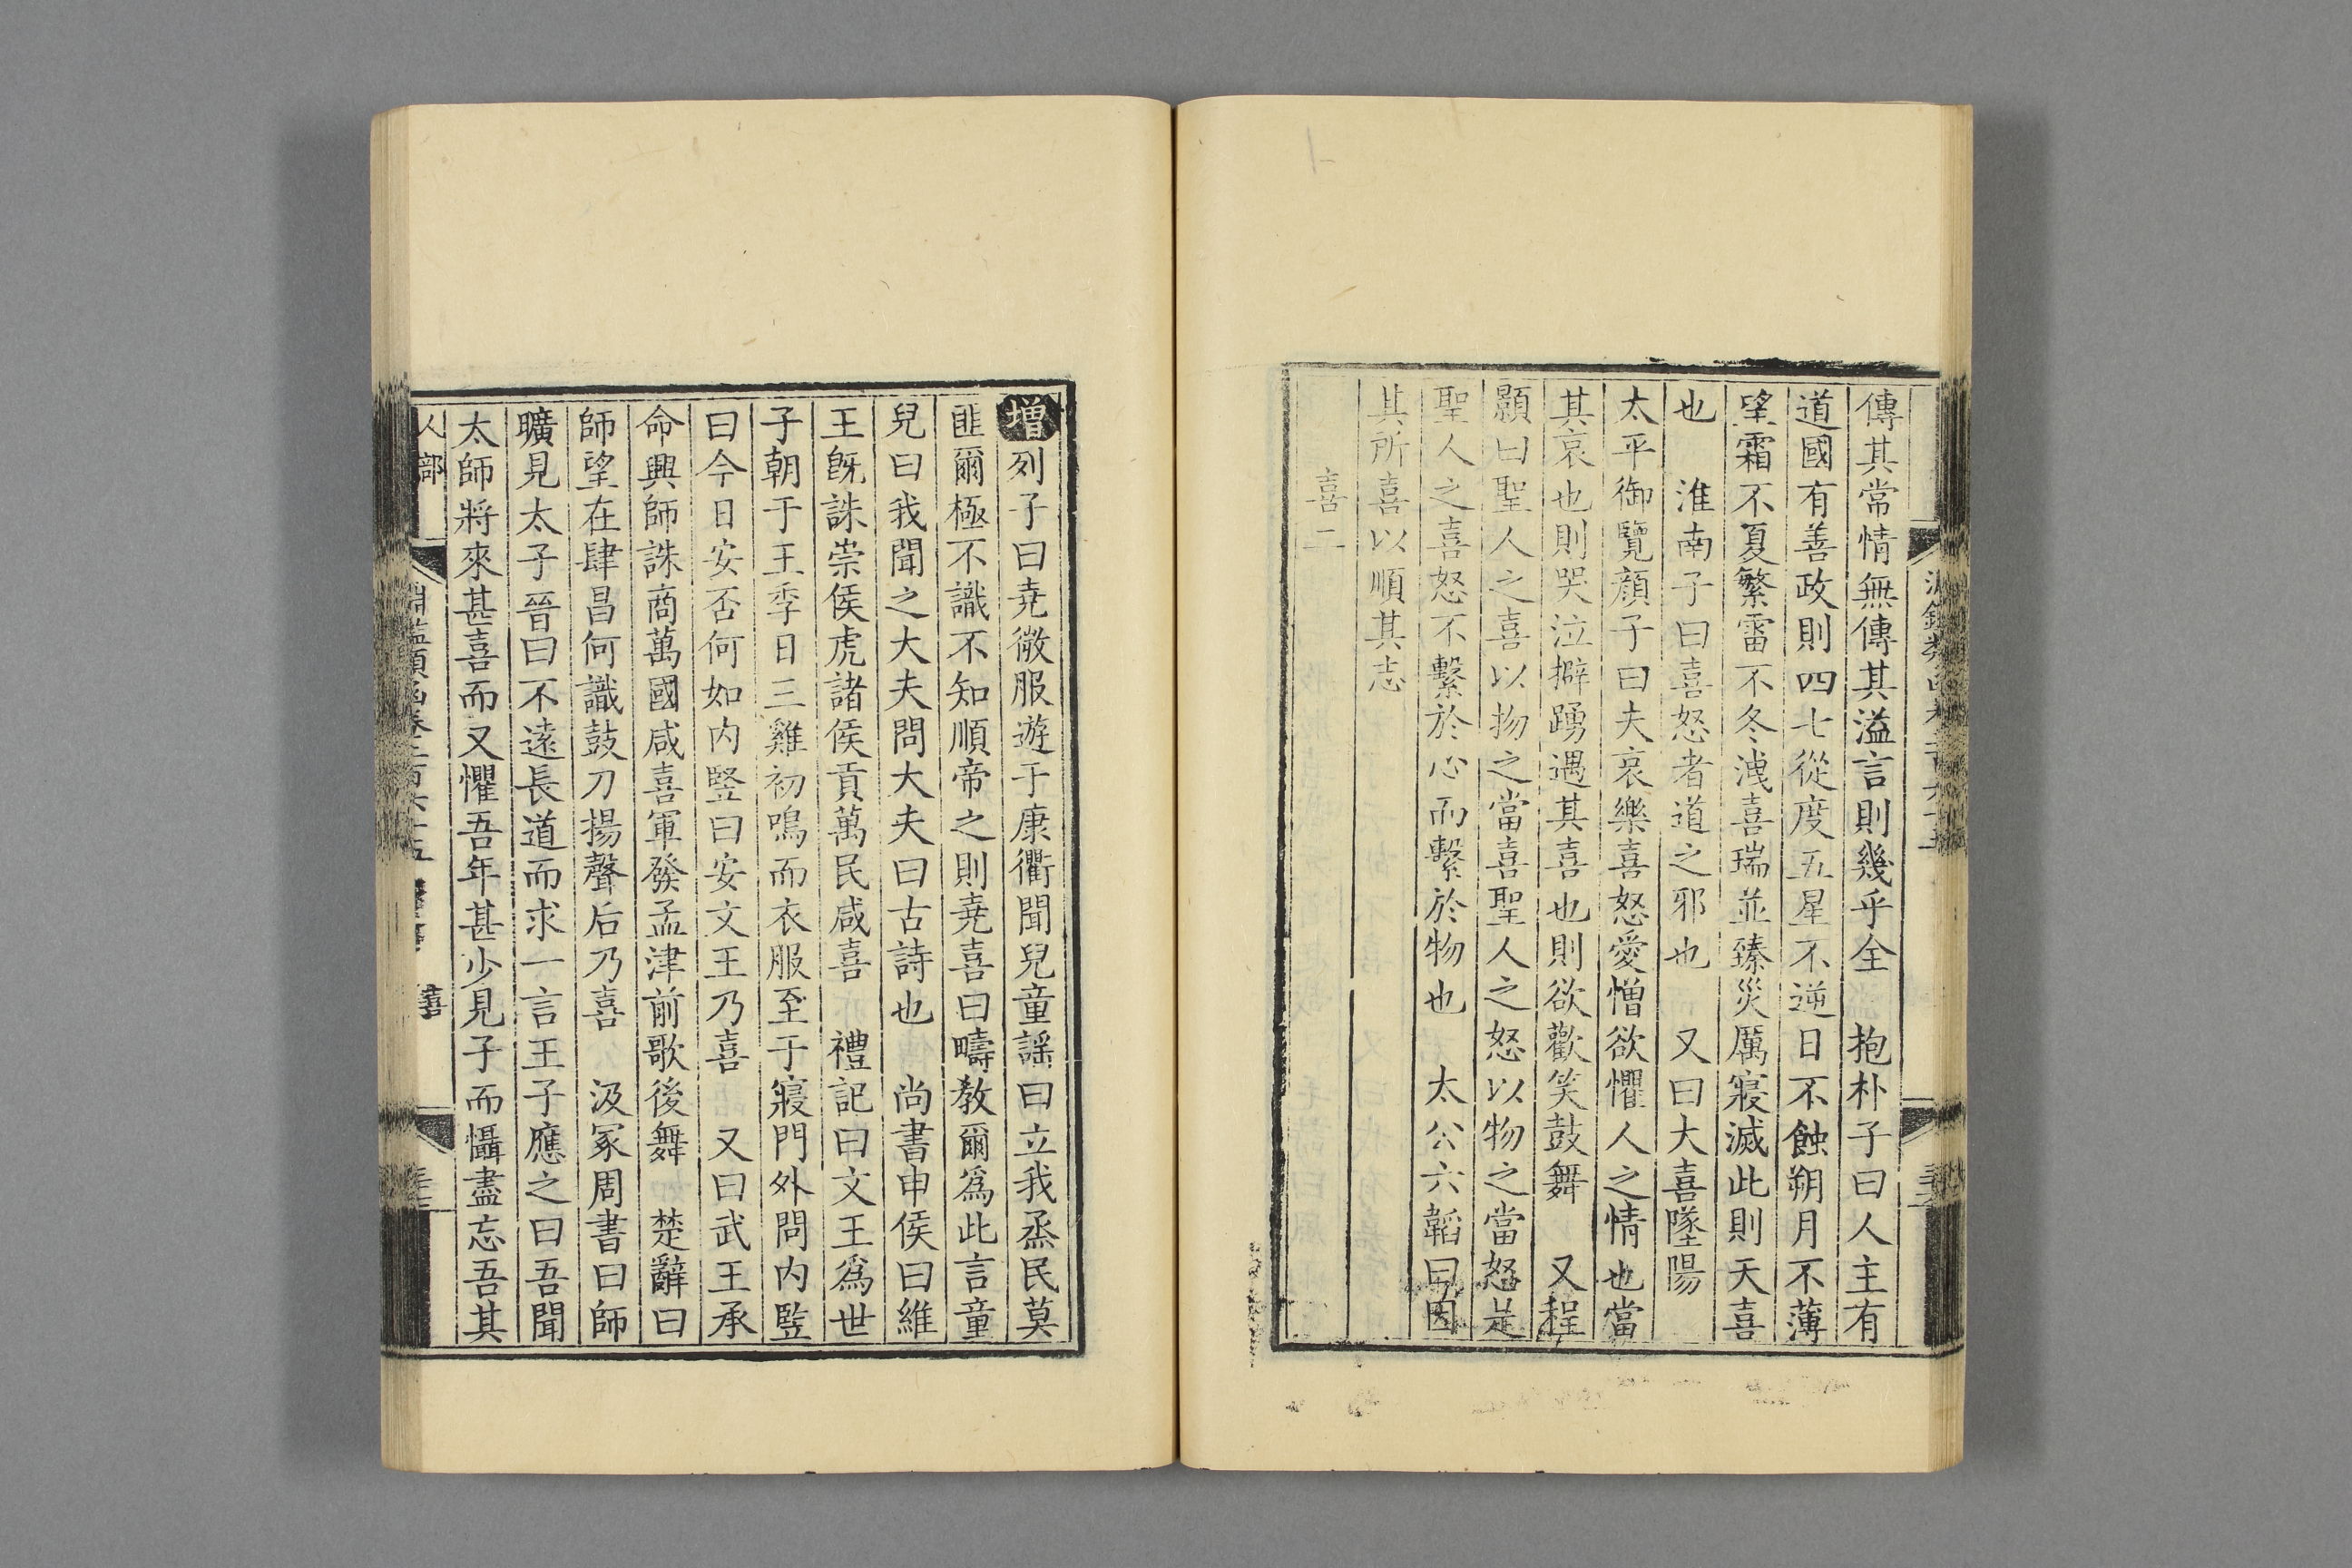 傳其常情無傳其溢言則幾乎全　抱朴子曰人主有
道國有善政則四七從度五星不逆日不蝕朔月不薄
望霜不夏繁雷不冬洩喜瑞並臻災厲寢滅此則天喜
也　淮南子曰喜怒者道之邪也　又曰大喜墜陽
太平御覽顏子曰夫哀樂喜怒愛憎欲懼人之情也當
其哀也則哭泣擗踴遇其喜也則欲歡笑鼓舞　又程
顥曰聖人之喜以物之當喜聖人之怒以物之當怒是
聖人之喜怒不繫於心而繫於物也　太公六韜曰因
其所喜以順其志
喜二
增列子曰堯微服遊于康衢聞兒童謠曰立我烝民莫
匪爾極不識不知順帝之則堯喜曰疇教爾爲此言童
兒曰我聞之大夫問大夫曰古詩也　尚書申侯曰維
王旣誅崇侯虎諸侯貢萬民咸喜　禮記曰文王爲世
子朝于王季日三雞初鳴而衣服至于寢門外問內豎
曰今日安否何如內豎曰安文王乃喜　又曰武王承
命興師誅商萬國咸喜軍發孟津前歌後舞　楚辭曰
師望在肆昌何識鼓刀揚聲后乃喜　汲冢周書曰師
曠見太子晉曰不遠長道而求一言王子應之曰吾聞
太師將來甚喜而又懼吾年甚少見子而懾盡忘吾其
人部　淵鑑類函卷二百六十五　喜